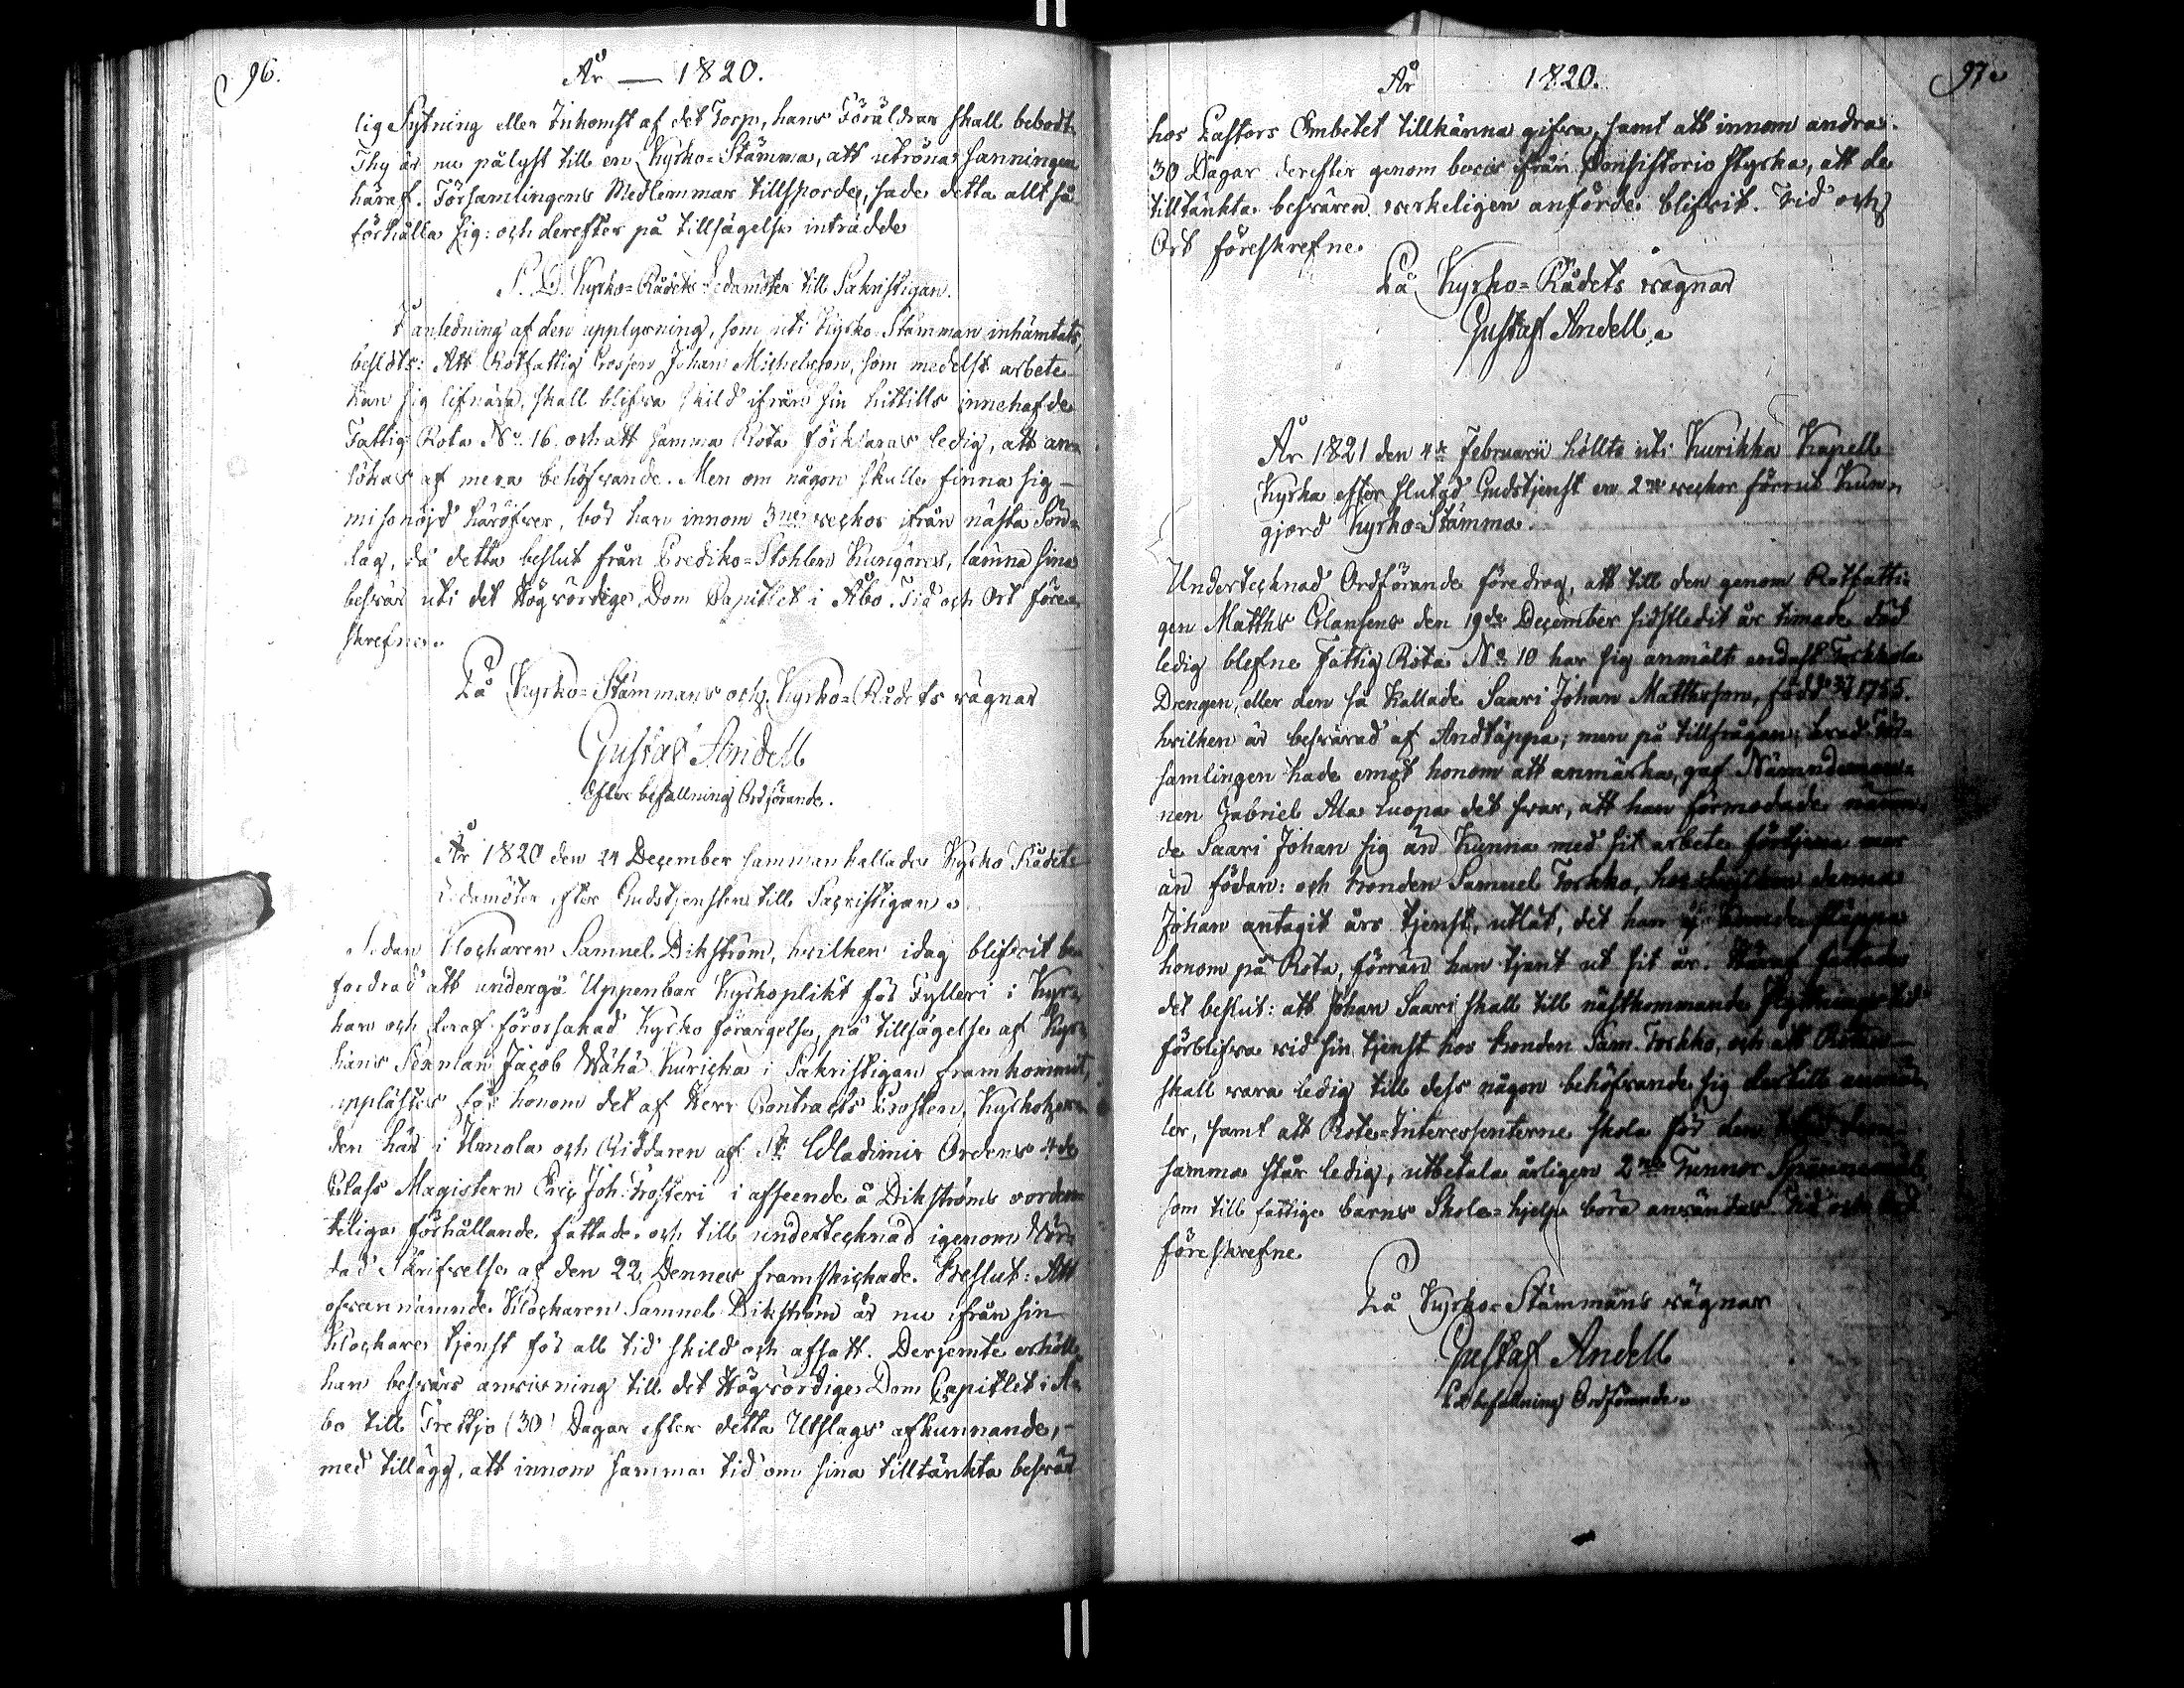 96.
År — 1820.
lig Sytning eller Inkomst af det Torp, hans Föräldrar skall bebodt,
Thy är nu pålyst till en Kyrko=Stämma, att utröna sanningen
häraf. Församlingens Medlemmar tillsporde, sade detta allt så
förhålla sig: och derefter på tillsägelse inträdde
S. D. Kyrko=Rådets Ledamöter till Sakristigan.
I anledning af den upplysning, som uti Kyrko Stämman inhämtats,
beslöts: Att Rotfattig Johan Michelsson, som medelst arbete
kan sig lifnära, skall blifva skild ifrån sin hittills innehafde
Fattig Rota No 16. och att samma Rota förklaras ledig, att an=
sökas af mera behöfvande. Men om någon skulle finna sig
misnöjd häröfver, bör han innom 3ne veckor ifrån nästa Sön=
dag, då detta beslut från Prediko=Stohlen kungöres, lämna sina
besvär uti det Högvördige Dom Capitlet i Åbo. Tid och Ort före=
skrefne.
På Kyrko=Stämmans och Kyrko=Rådets vägnar
Gustaf Andell
Efter befallning Ordförande.
År 1820 den 24 December sammankallades Kyrko Rådets
Ledamöter efter Gudstjensten till Sacristigan.
Sedan Klockaren Samuel Dikström, hvilken idag blifvit be=
fordrad att undergå Uppenbar Kyrkoplikt för Fylleri i Kyr=
kan och deraf förorsakad Kyrko förargelse, på tillsägelse af Kyr=
kans Sexman Jacob Wähä Kuricka i Sakristigan framkommit,
upplästes för honom det af Herr Contracts Prosten, Kyrkoher=
den här i Ilmola och Riddaren af St Wladimir Ordens 4de
Class Magistern Eric Joh: Frosteri i afseende å Dikströms oorden=
teliga förhållande fattade och till undertecknad igenom
Skrifvelse af den 22 Dennes framskickade Beslut: Att
ofvannämnde Klockaren Samuel Dikström är nu ifrån sin
Klockare tjenst för all tid skild och afsatt. Derjemte erhölt
han besvärs anvisning till det Högvördige Dom Capitlet i Å=
bo till Trettjo (30) Dagar efter detta Utslags afkunnande,
med tillägg, att innom samma tid om sina tilltänkta besvär
97.
År 1820.
hos Pastors Embetet tillkänna gifva, samt att innom andra
30 Dagar derefter genom bevis ifrån Consistorio styrka, att de
tilltänkta besvären verkeligen anförde blifvit. Tid och
Ort föreskrefne.
På Kyrko=Rådets vägnar
Gustaf Andell.
År 1821 den 4de Februarii höllts uti Kurikka Kapell
Kyrka efter slutad Gudstjenst en 2ne veckor förrut kun=
gjord Kyrko=Stämma.
Undertecknad Ordförande föredrog, att till den genom Rotfatti=
gen Matths Clausens den 19de December sidstledit år timade död
ledig blefne Fattig Rota No 10 har sig anmält endast
Drengen, eller den så kallade Saari Johan Matthsson, född 1755.
hvilken är besvärad af Andtäppa; men på tillfrågan; hvad För=
samlingen hade emot honom att anmärka, gaf Nämndeman=
nen Gabriel Ala Luopa det svar, att han förmodade nämn=
de Saari Johan sig än kunna med sit arbete förtjena mer
än födan: och bonden Samuel Torkko, hos hvilken denna
Johan antagit års tjenst, utlät, det han ej kunde släppa
honom på Rota, förrän han tjent ut sit år. Häraf fattades
det beslut: att Johan Saari skall till nästkommande flyttnings tid
förblifva vid sin tjenst hos bonden Sam. Torkko, och att Rotan
skall vara ledig till dess någon behöfvande sig dertill anmä=
ler, samt att Rote=Interessenterne skola för den tid den
samma står ledig, utbetala årligen 2ne Tunnor Spannemål,
som till fattige barns Skole=hjelp böra användas. Tid och Ort
föreskrefne
På Kyrko=Stämmans vägnar
Gustaf Andell
Ex befallning Ordförande.